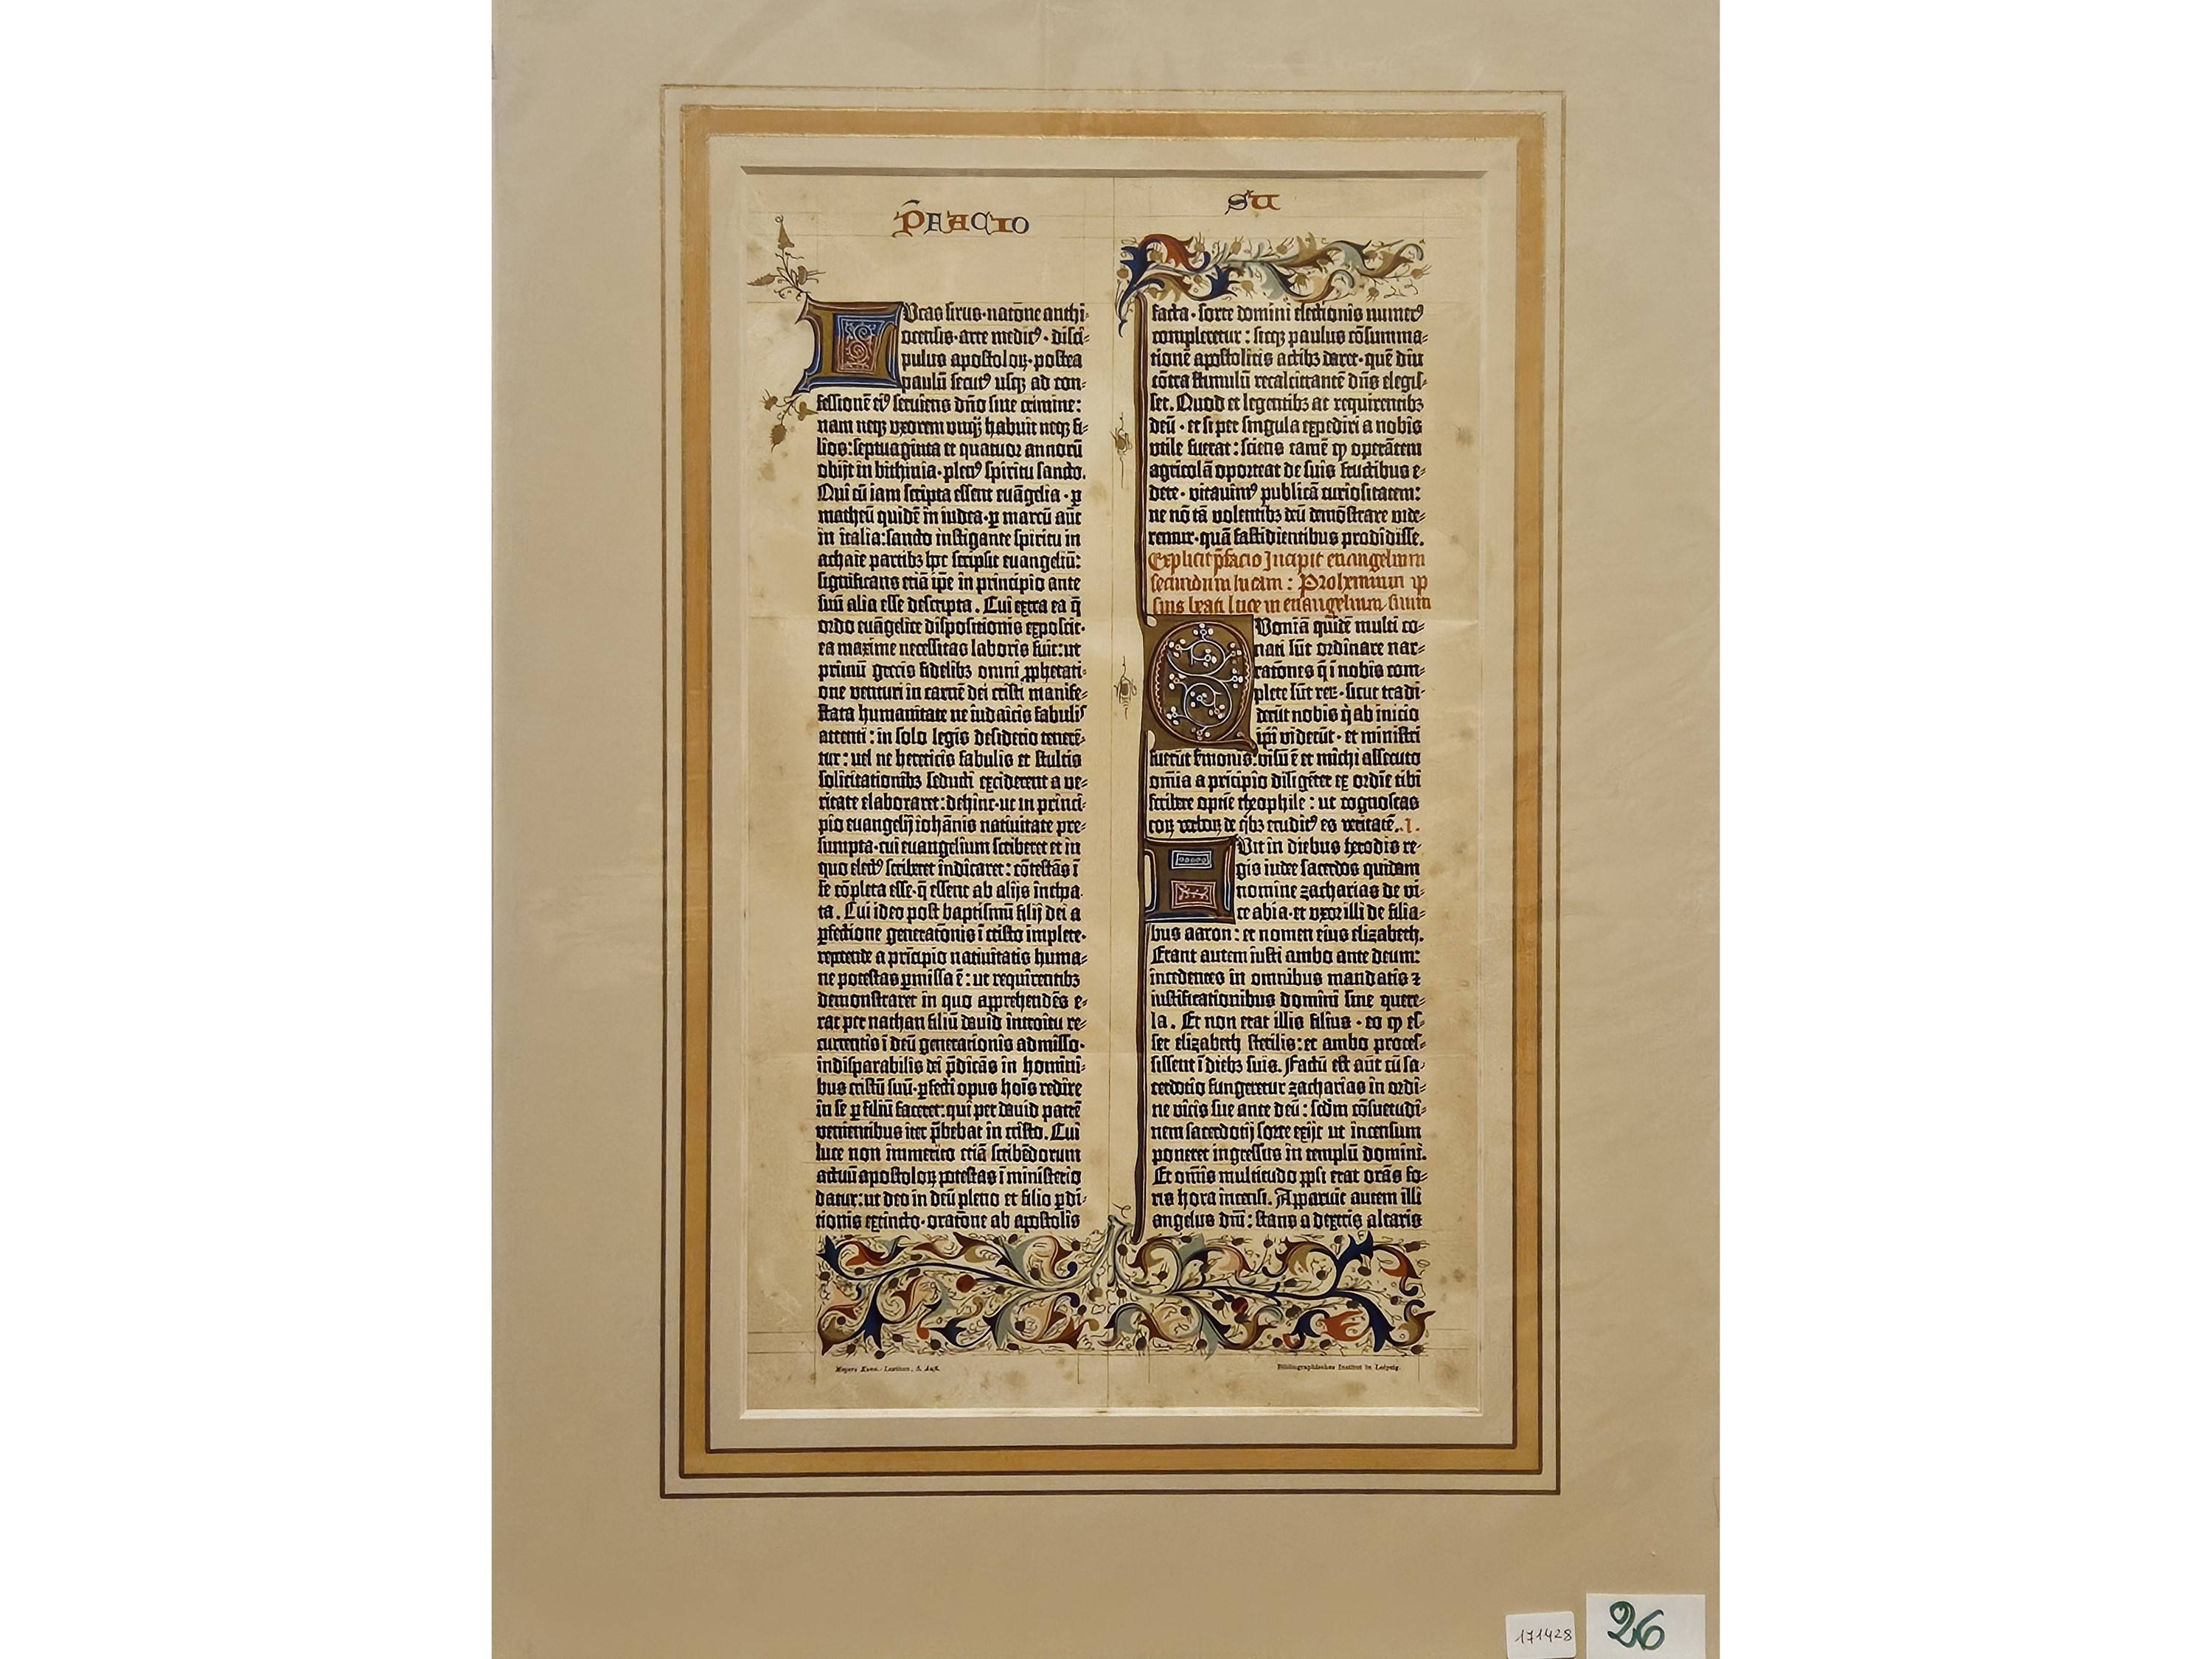 P̄FACIO
SU
Lucas sirus·natōne anthi⸗
ocensis·arte medicꝰ·disci⸗
pulus apostoloꝝ·postea
paulū secutꝰ usqꝫ ad con⸗
fessionē eiꝰ seruiens dn̄o sine crimine:
nam neqꝫ vxorem vnqꝫ habuit neqꝫ fi⸗
lios:septuaginta et quatuor annorū
obijt in bithinia·plenꝰ spiritu sancto.
Qui cū iam scripta essent euāgelia·ꝑ
matheū quidē in iudea·ꝑ marcū aūt
in italia:sancto instigante spiritu in
achaie partibꝫ hoc scripsit euangeliū:
significans eciā ip̄e in principio ante
suū alia esse descripta. Cui extra ea q̄
ordo euāgelice dispositionis exposcit·
ea maxime necessitas laboris fuit:ut
primū grecis fidelibꝫ omni ꝓphetati⸗
one venturi in carnē dei cristi manife⸗
stata humanitate ne iudaicis fabulis
attenti: in solo legis desiderio tenerē⸗
tur: vel ne hereticis fabulis et stultis
solicitationibꝫ seducti exciderent a ve⸗
ritate elaboraret:dehinc·ut in princi⸗
pio euangelij iohānis natiuitate pre⸗
sumpta·cui euangelium scriberet et in
quo electꝰ scriberet indicaret: cōtestās ī
se cōpleta esse·q̄ essent ab alijs incepa⸗
ta. Cui ideo post baptismū filij dei a
ꝑfectione generatōnis ī cristo implete·
repetende a principio natiuitatis huma⸗
ne potestas ꝑmissa ē: ut requirentibꝫ
demonstraret in quo apprehendēs e⸗
rat per nathan filiū dauid introitu re⸗
currentis ī deū generationis admisso·
indisparabilis dei p̄dicās in homini⸗
bus cristū suū·ꝑfecti opus hoīs redire
in se ꝑ filiū faceret:qui per dauid patrē
venientibus iter p̄bebat in cristo. Cui
luce non immerito eciā scribēdorum
actuū apostoloꝝ potestas ī ministerio
datur:ut deo in deū pleno et filio ꝑdi⸗
tionis extincto·oratōne ab apostolis
facta·sorte domini electionis numerꝰ
compleretur: sicqꝫ paulus cōsumma⸗
tionē apostolicis actibꝫ daret·quē diu
cōtra stimulū recalcitrantē dn̄s elegis⸗
set. Quod et legentibꝫ ac requirentibꝫ
deū·et si per singula expediri a nobis
vtile fuerat:sciens tamē ꝙ operātem
agricolā oporteat de suis fructibus e⸗
dere·vitauimꝰ publicā curiositatem:
ne nō tā volentibꝫ deū demōstrare vide⸗
remur·quā fastidientibus prodidisse.
Explicit p̄facio Incipit euangelium
secundum lucam: Prohemium ip
sius beati luce in euangelium suum
Quoniā quidē multi co⸗
nati sūt ordinare nar⸗
ratōnes q̄ ī nobis com⸗
plete sūt reꝝ·sicut tradi⸗
derūt nobis q̇ ab inicio
ip̄i viderūt·et ministri
fuerūt s̄monis:visū ē et michi assecuto
om̄ia a pricipio diligēter ex ordīe tibi
scribere optīe theophile: ut cognoscas
eoꝝ verboꝝ de q̇bꝫ eruditꝰ es veritatē. I.
Fuit in diebus herodis re⸗
gis iudee sacerdos quidam
nomine zacharias de vi⸗
ce abia·et vxor illi de filia⸗
bus aaron: et nomen eius elizabeth.
Erant autem iusti ambo ante deum:
incedentes in omnibus mandatis ⁊
iustificationibus domini sine quere⸗
la. Et non erat illis filius·eo ꝙ es⸗
set elizabeth sterilis:et ambo proces⸗
sissent ī diebꝫ suis. Factū est aūt cū sa⸗
cerdotio fungeretur zacharias in ordi⸗
ne vicis sue ante deū: scd̄m cōsuetudi⸗
nem sacerdotij sorte exijt ut incensum
poneret ingressus in templū domini.
Et om̄is multitudo ppl̄i erat orās fo⸗
ris hora incensi. Apparuit autem illi
angelus dn̄i: stans a dextris altaris
Meyers Konv.-Lexikon, 5. Aufl.
Bibliographisches Institut in Leipzig.
171428
26